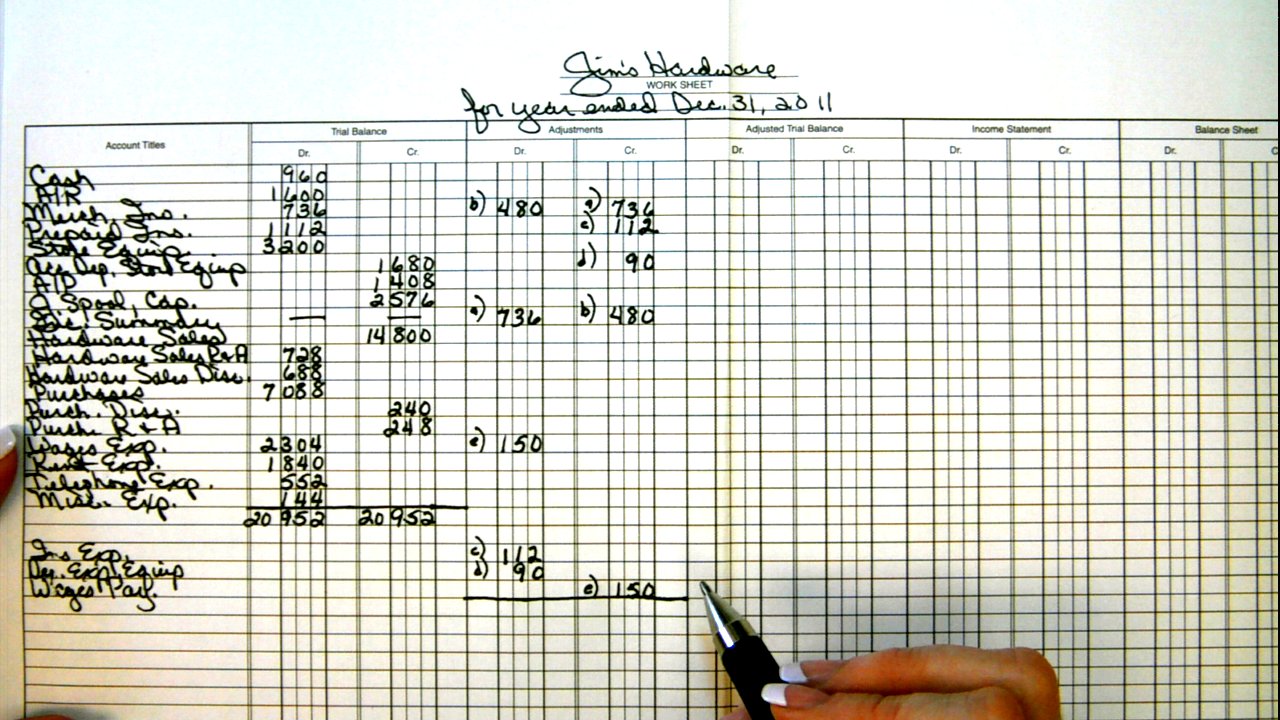 Jim's Hardware
WORK SHEET
for year ended Dec. 31, 2011
Account Titles Trial Balance Adjustments Adjusted Trial Balance Income Statement Balance Sheet
Dr. Cr. Dr. Cr. Dr. Cr. Dr. Cr. Dr. C
Cash 960
A/R 1600
Merch. Inv. 736 b) 480 a) 736
Prepaid Ins. 1112 c) 112
Store Equip. 3200
Acc. Dep. Store Equip 1680 d) 90
A/P 1408
J. Spool, Cap. 2576
Inc. Summary — — a) 736 b) 480
Hardware Sales 14800
Hardware Sales R+A 728
Hardware Sales Disc. 688
Purchases 7088
Purch. Disc. 240
Purch. R + A 248
Wages Exp. 2304 e) 150
Rent Exp. 1840
Telephone Exp. 552
Misc. Exp. 144
20952 20952
Ins. Exp. c) 112
Dep. Exp. Equip d) 90
Wages Pay. e) 150